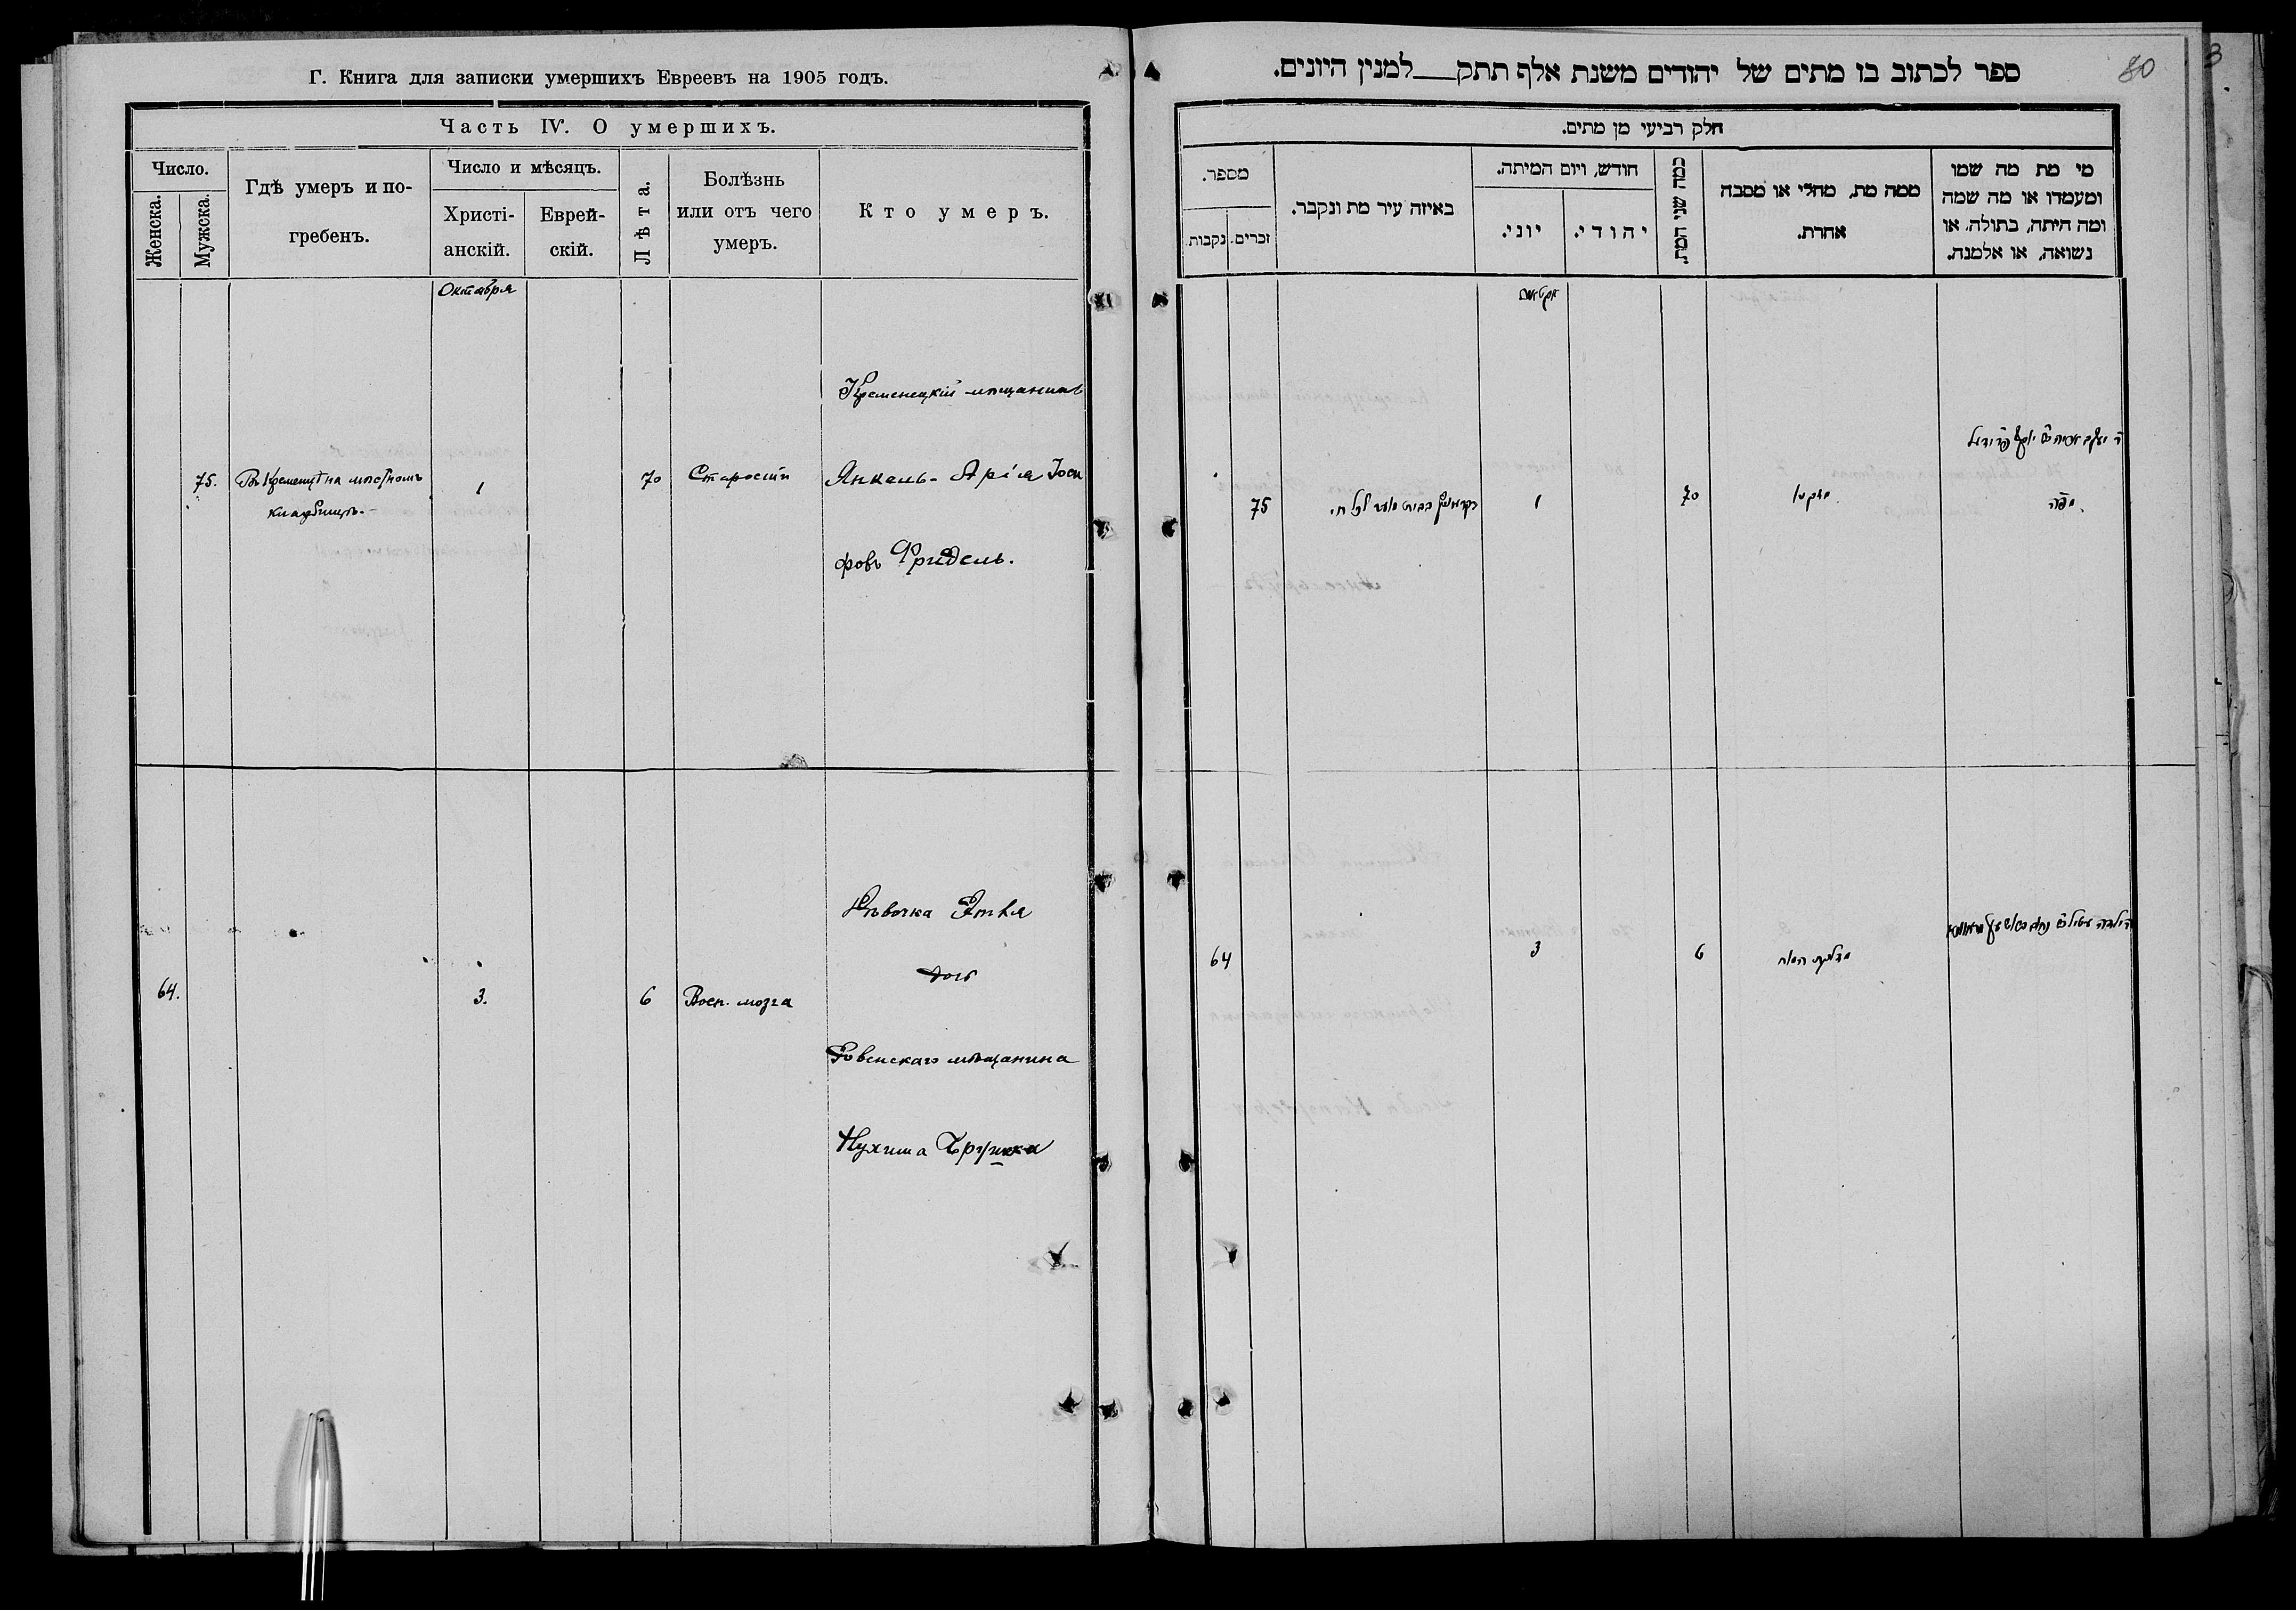 Г. Книга для записки умершихъ Евреевъ на 1905 годъ.
Часть IV. О умершихъ.
Число.
Женска.
Мужска.
Гдѣ умеръ и по-
гребенъ.
Число и мѣсяцъ.
Христі-
анскій.
Еврей-
скій.
Лѣта.
Болѣзнь
или отъ чего
умеръ.
Кто умеръ.
Октября
Кременецкій мѣщанинъ
75. Въ Кременцѣ на мѣстномъ 1 70 Старости Янкель-Арія Іоси
кладбищѣ.
фовъ Фридель.
Дѣвочка Этля
дочь
64. 3. 6 Восп. мозга
Ровенскаго мѣщанина
Нухима
ספר לכתוב בו מתים של יהודים משנת אלף תתק למנין היונים.
80
חלק רביעי מן מתים.
מספר.
נקבות.
זכרים.
באיזה עיר מת ונקבר.
חודש, ויום המיתה.
יוני.
יהודי.
כמה שני המת.
ממה מת, מחלי או מסבה
אחרת.
מי מת מה שמו
ומעמדו או מה שמה
ומה היתה, בתולה, או
נשואה, או אלמנה.
75 1 70
64 3 6
3